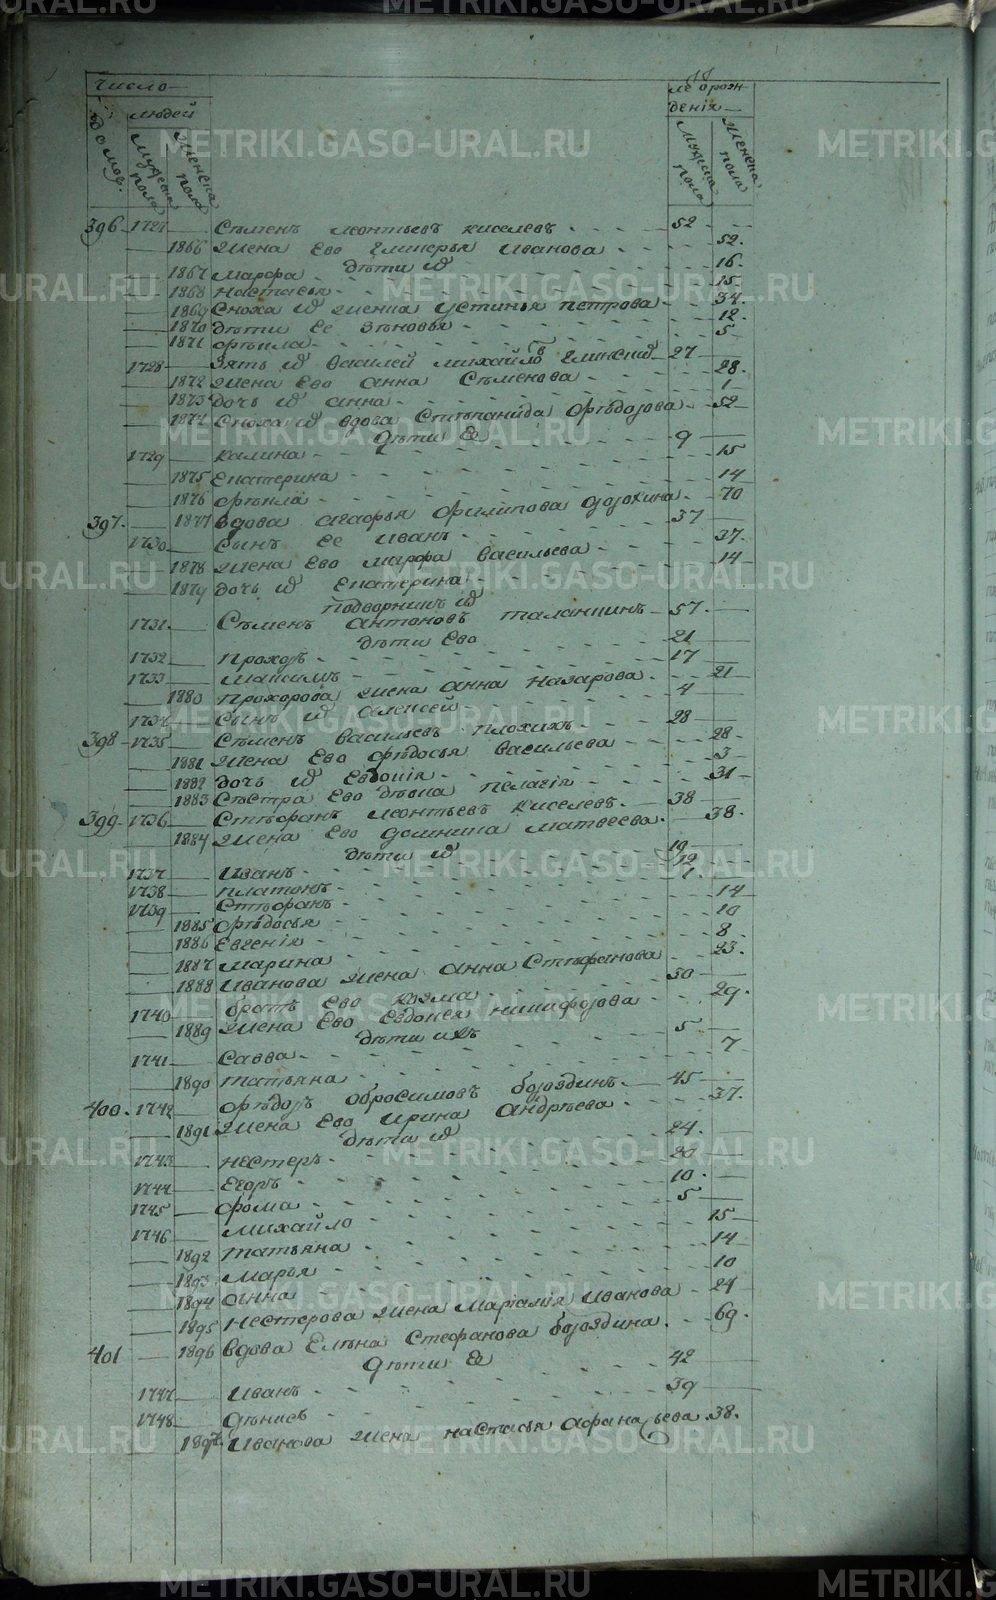 METRIKI.GASO-URAL.RU
Число
людей
домов.
мужеска пола
женска пола
ле
рож-
дения
мужеска пола
женска пола
396 1727 Сѣменъ Леонтьевъ Киселевъ 52
1866 жена Ево Гликерья Иванова 52.
дѣти их
1867 Марфа 16
1868 Настасья 15
1869 сноха их жена Устинья Петрова 34.
1870 дѣти Ее Зѣновья 12.
1871 Фѣкла 5
1728 Зять их Василей Михайлов 27
1872 жена Ево Анна Сѣменова 28.
1873 дочь их Анна 1
1874 Сноха их вдова Стѣпанида Фѣдорова 52
дѣти Ее
1729 Калина 9
1875 Екатерина 15
1876 Фѣкла 14
397. 1877 вдова Агафья Филипова 70
1730 Сынъ Ее Иванъ 37
1878 жена Ево Марфа Васильева 37.
1879 дочь их Екатерина 14
Подворникъ их
1731. Сѣменъ Антоновъ Таланкинъ 57.
дѣти Ево
1732 Прохоръ 21
1733 Максимъ 17
1880 Прохорова жена Анна Назарова 21
1734 Сынъ их Алексей 4
398 1735 Сѣменъ Васильевъ Плохихъ 28
1881 жена Ево Фѣдосья Васильева 28
1882 дочь их Евдокия 3
1883 Сѣстра Ево дѣвка Пелагія 31
399 1736 Стѣфанъ Леонтьевъ Киселевъ 38
1884 жена Ево Домника Матвеева 38.
дѣти их
1737 Иванъ 19
1738 Платонъ 12
1739 Стѣфанъ 1
1885 Фѣдосья 14
1886 Евгенія 10
1887 Марина 8
1888 Иванова жена Анна Стѣфанова 23.
1740 братъ Ево Козма 30
1889 жена Ево Евдокея Никифорова 29.
дѣти ихъ
1741 Савва 5
1890 Татьяна 7
400. 1742 Фѣдоръ Обросимовъ Бороздинъ 45
1891 жена Ево Ирина Андрѣева 37.
дѣти их
1743 Нестеръ 24.
1744 Егоръ 20
1745 Фома 10
1746 Михайло 5
1892 Татьяна 15
1893 Марья 14
1894 Анна 10
1895 Нестерова жена Маріамія Иванова 24
401 1896 вдова Елѣна Стефанова Бороздина 69.
дѣти Ее
1747 Иванъ 42
1748 Дѣнисъ 39
1897 Иванова жена Настасья Афанасьева 38.